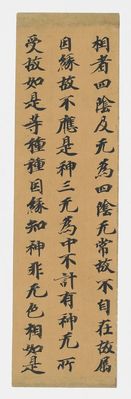 相者四陰及无為四陰无常故不自在故屬
因緣故不應是神三无為中不計有神无所
受故如是等種種因緣知神非无色相如是